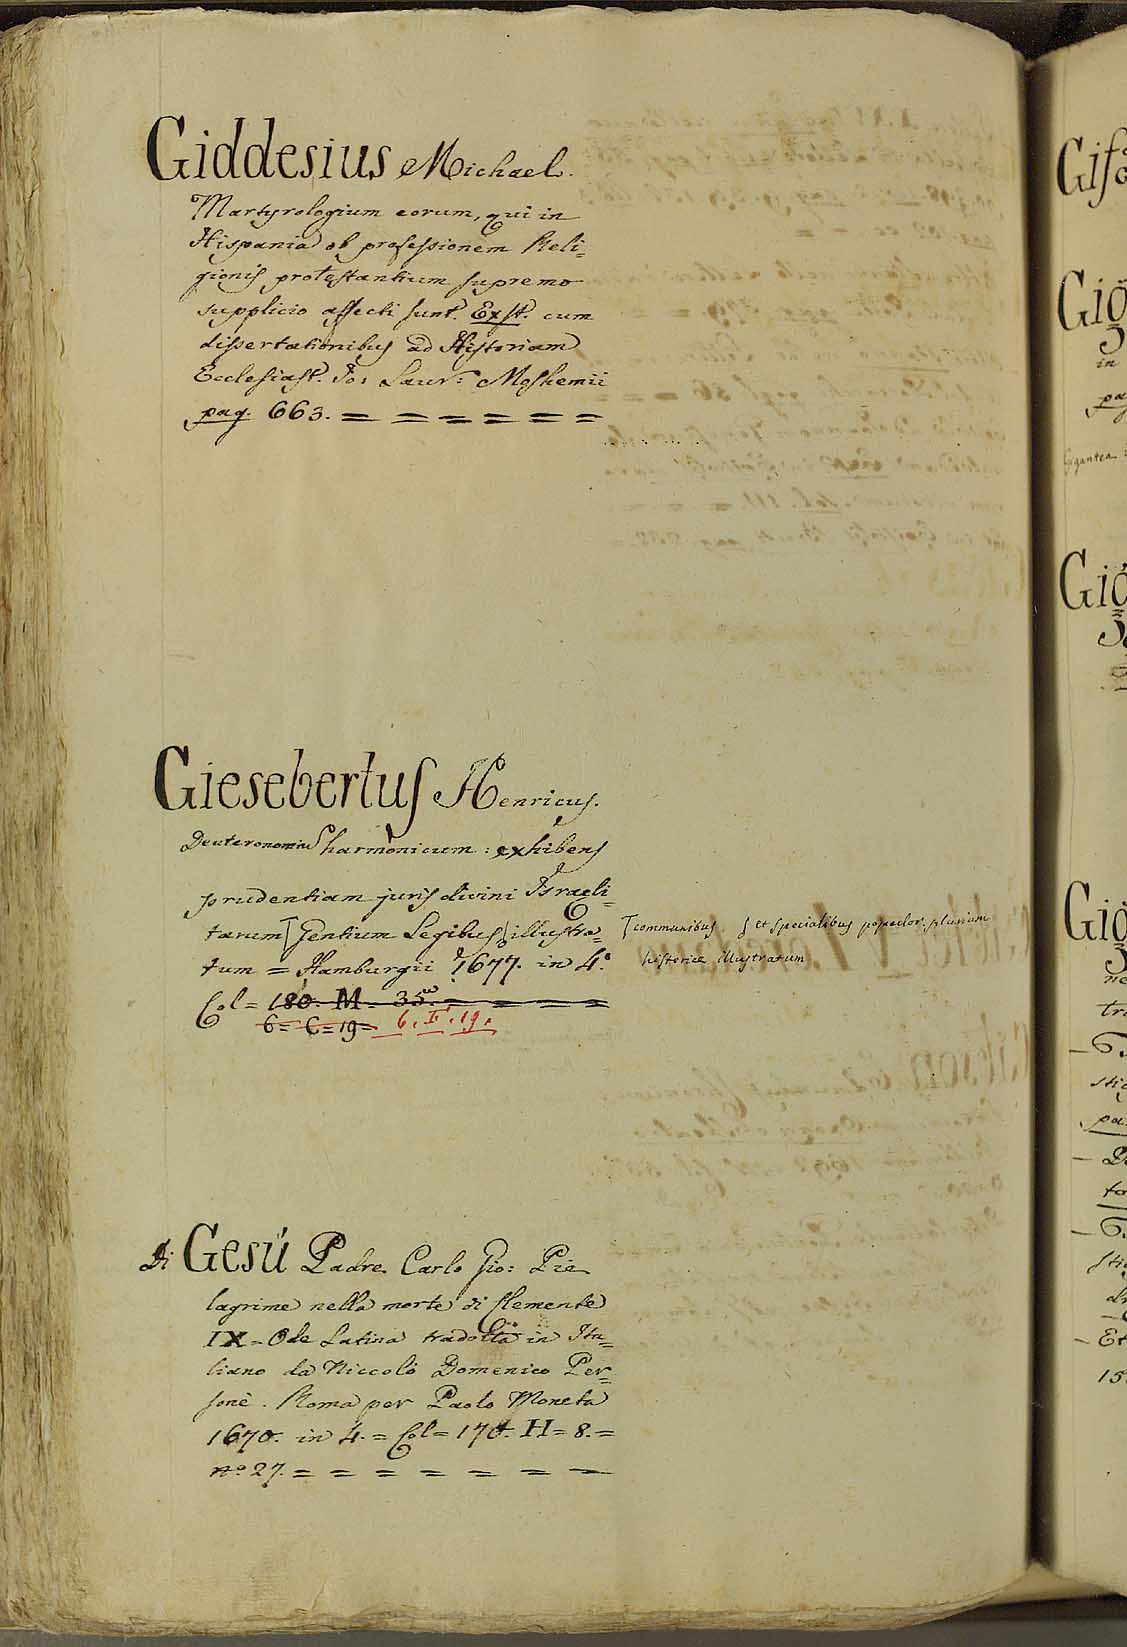 Giddesius Michael.
Martyrologium eorum, qui in
Hispania ob professionem Reli=
gionis protestantium supremo
supplicio affecti sunt. Exst. cum
dissertationibus ad Historiam
Ecclesiast. Jo: Laur: Moshemii
pag. 663. = = = = = =
Giesebertus Henricus.
Deuteronomiu harmonicum: exhibens
prudentiam juris divini Israeli=
tarum Gentium Legibus illustra=
tum = Hamburgii 1677. in 4.°
communibus et specialibus populor: plurium
historiæ illustratum
Col = 180. M = 35.
6 = C = 19 = 6. F. 19.
Di Gesù Padre Carlo Gio: Pie
lagrime nella morte di Clemente
IX = Ode Latina tradotta in Ita=
liano da Niccolò Domenico Per=
sonè. Roma per Paolo Moneta
1670. in 4. = Col = 170. H = 8. =
n.° 27. = = = = = = =
Gig
in
pag
Gigantea
Gig
Gig
tra
pa
Et
15